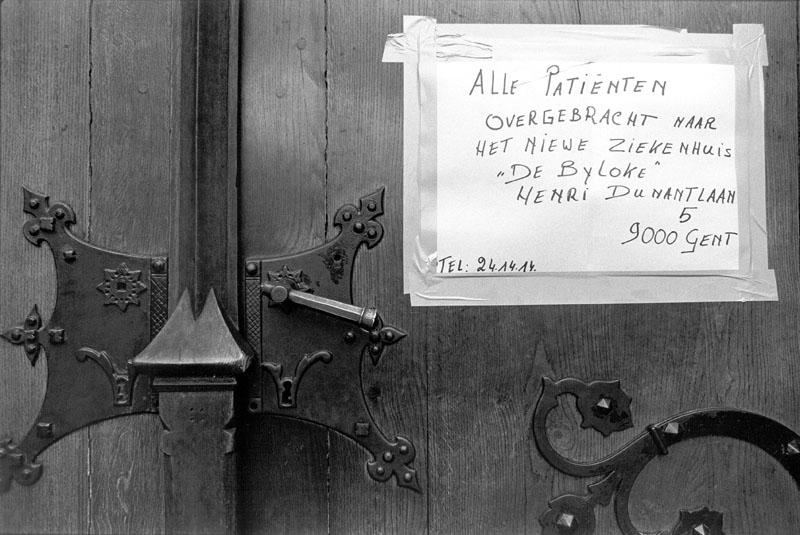 ALLE PATIËNTEN
OVERGEBRACHT NAAR
HET NIEWE ZIEKENHUIS
„DE BYLOKE"
HENRI DUNANTLAAN
5
9000 GENT
TEL: 24.14.14.